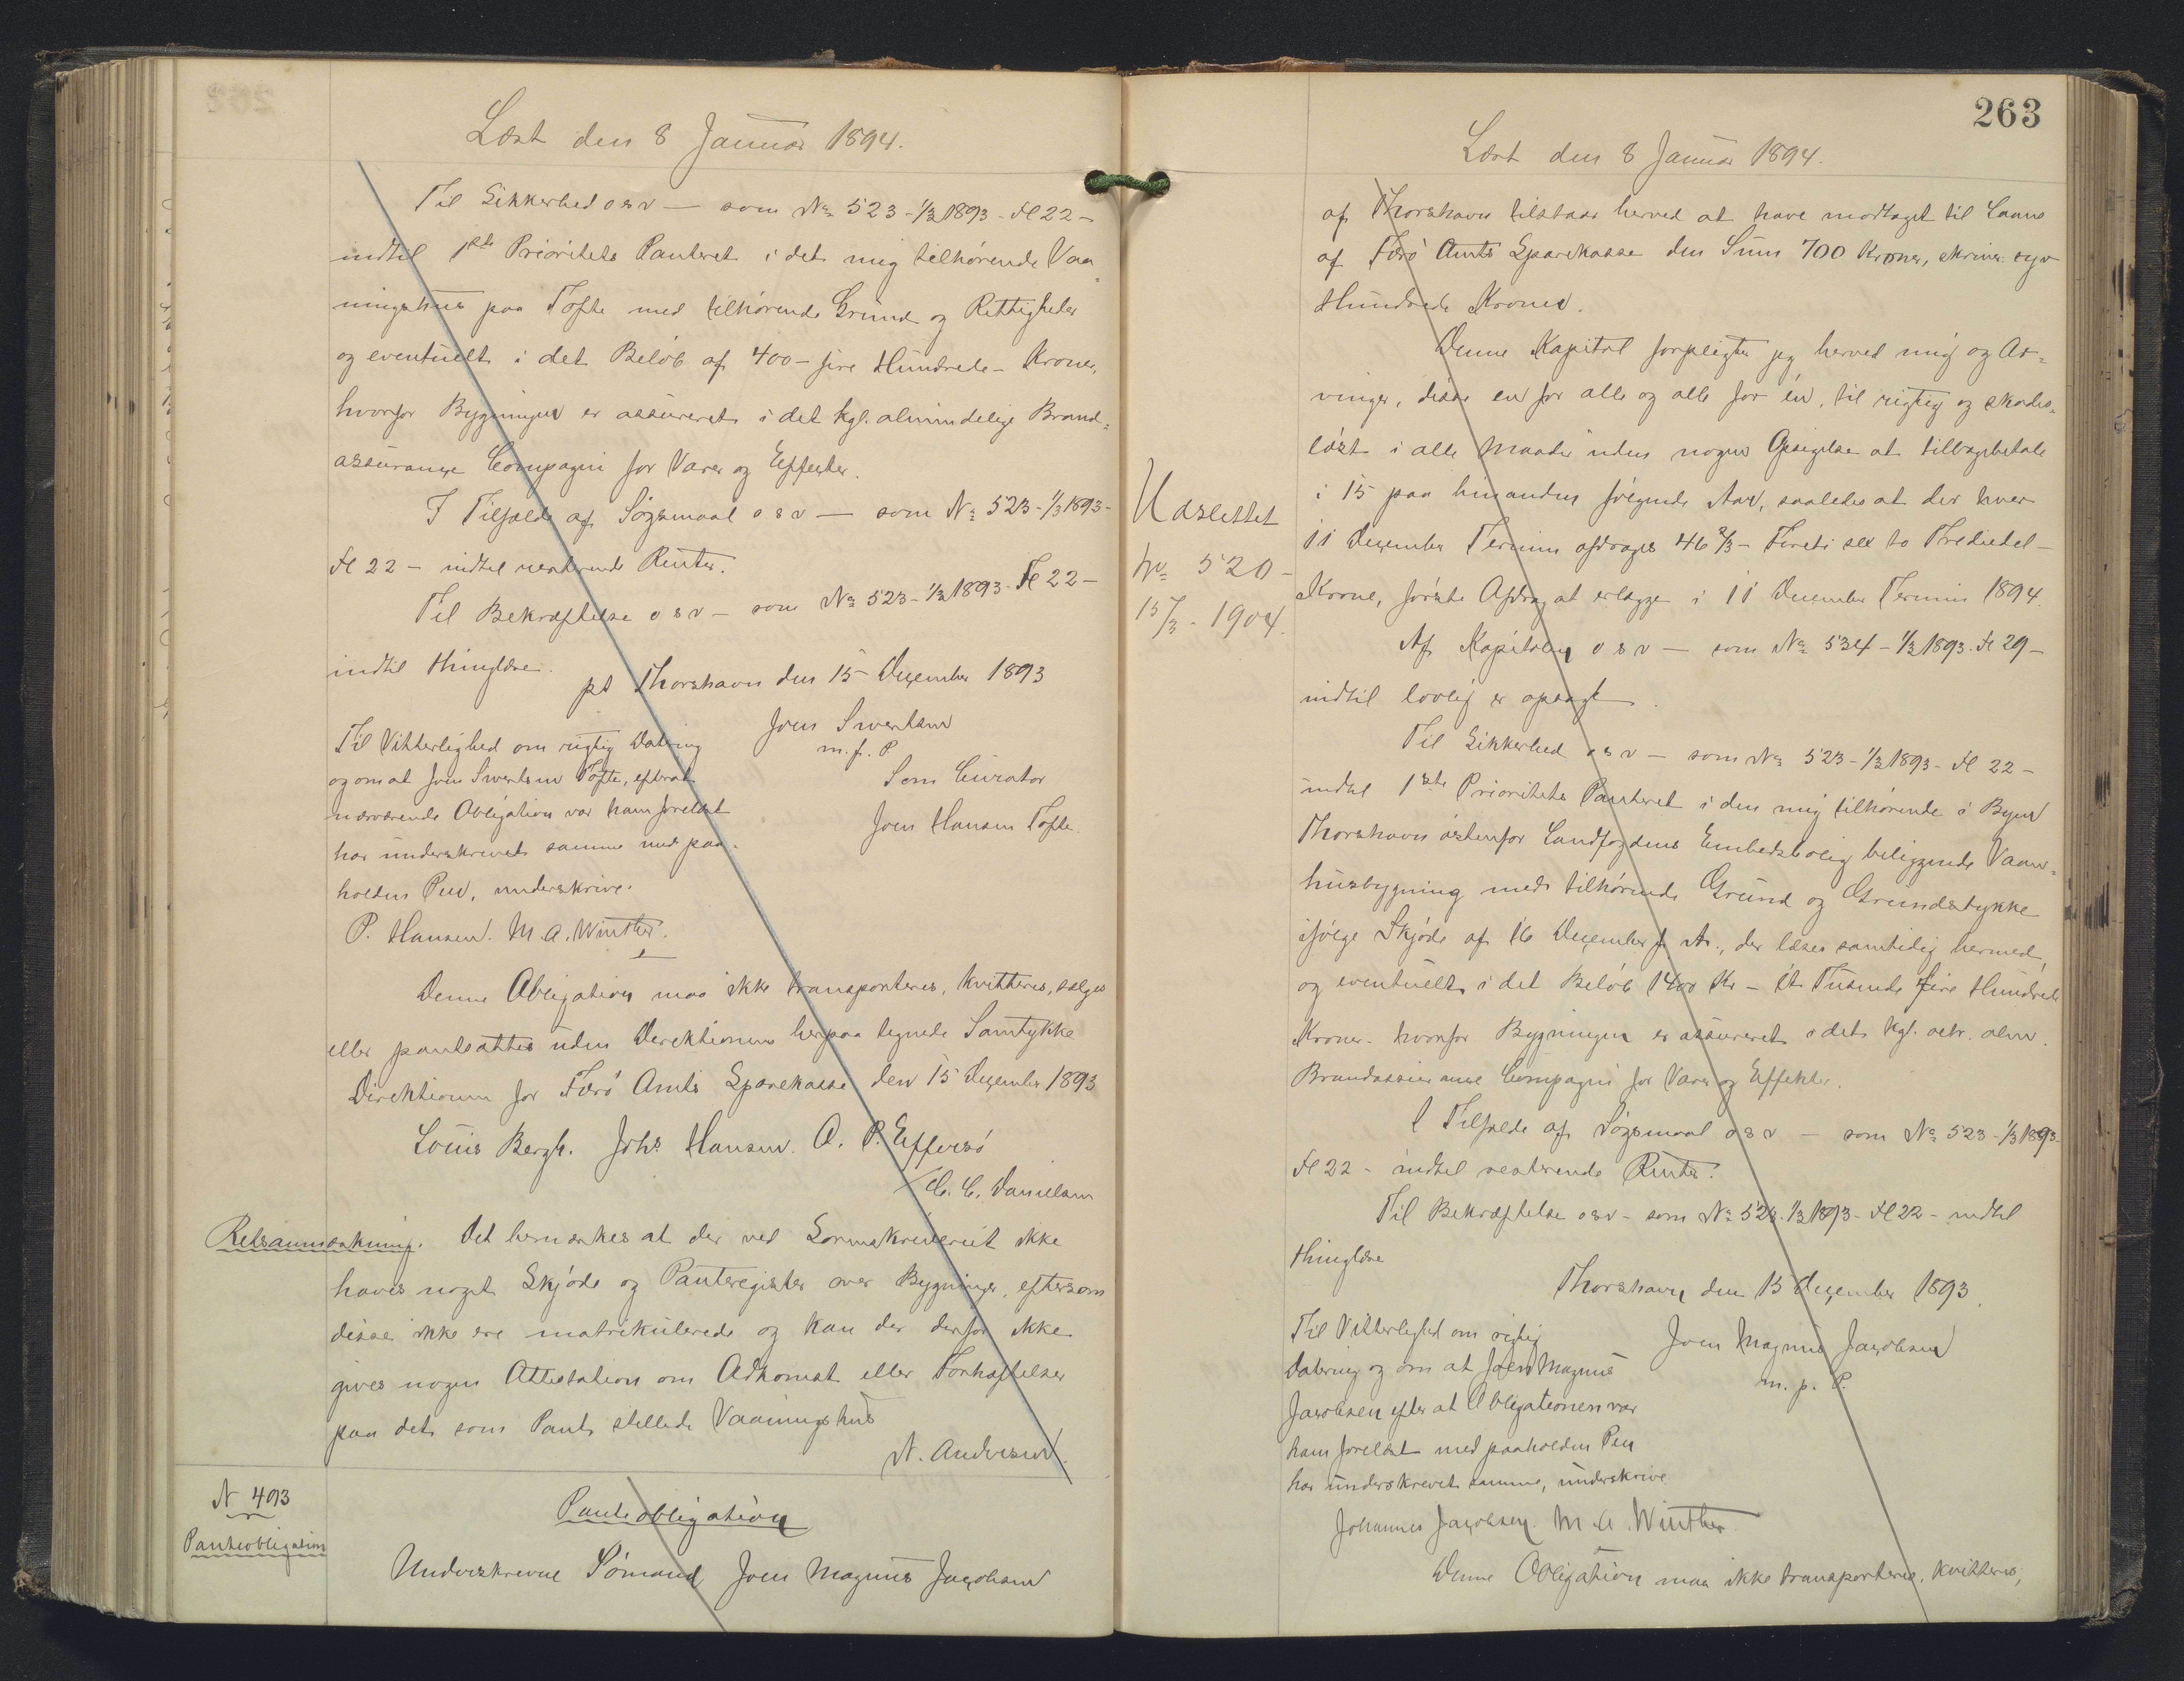 Læst den 8 Januar 1894.
Til Sikkerhed o s v — som No 523 - 1/3 1893 - Fl 22 -
indtil 1ste Prioritets Panteret i det mig tilhørende Vaa-
ningshus paa Tofte med tilhørende Grund og Rettigheder
og eventuelt i det Beløb af 400 - fire Hundrede - Kroner,
hvorfor Bygningen er assureret i det kgl. almindelige Brand-
assurance Compagni for Varer og Effecter.
I Tilfælde af Søgsmaal o s v — som No 523 - 1/3 1893 -
Fl 22 - indtil resterende Renter.
Til Bekræftelse o s v - som No 523 - 1/3 1893 - Fl 22 -
indtil thinglæse.
pt Thorshavn den 15 December 1893
Joen Sivertsen
m. f. P.
Som Curator
Joen Hansen Tofte.
Til Vitterlighed om rigtig Datering
og om at Joen Sivertsen Tofte, efterat
nærværende Obligation var ham forelæst
har underskrevet samme med paa-
holden Pen, underskrive.
P. Hansen. M. A. Winther.
Denne Obligation maa ikke transporteres, kvitteres, sælges
eller pantsættes uden Direktionens herpaa tegnede Samtykke
Direktionen for Færø Amts Sparekasse den 15 December 1893
Louis Bergh. Johs Hansen. O. P. Effersø
/ C. C. Danielsen
Retsanmærkning. Det bemærkes at der ved Sorenskriveriet ikke
haves noget Skjøde og Panteregister over Bygninger, eftersom
disse ikke ere matrikulerede og kan der derfor ikke
gives nogen Attestation om Adkomst eller Forhæftelser
paa det som Pant stillede Vaaningshus
N. Andersen.
N 493
Panteobligation
Panteobligation
Underskrevne Sømand Joen Magnus Jacobsen
263
Læst den 8 Januar 1894.
af Thorshavn tilstaar herved at have modtaget til Laans
af Færø Amts Sparekasse den Sum 700 Kroner, skriver syv
Hundrede Kroner.
Denne Kapital forpligter jeg herved mig og Ar-
vinger, disse en for alle og alle for én, til rigtig og skades-
løst i alle Maader uden nogen Opsigelse at tilbagebetale
i 15 paa hinanden følgende Aar, saaledes at der hver
11 December Termin afdrages 46 2/3 - Fireti sex to Trediedel -
Krone, første Afdrag at erlægge i 11 December Termin 1894.
Af Kapitalen o s v — som No 534 - 1/3 1893 - Fl 29 -
indtil lovlig er opsagt.
Til Sikkerhed o s v - som No 523 - 1/3 1893 - Fl 22 -
indtil 1ste Prioritets Panteret i den mig tilhørende i Byen
Thorshavn østenfor Landfogdens Embedsbolig beliggende Vaan-
husbygning med tilhørende Grund og Grundstykke
ifølge Skjøde af 16 December f. A., der læses samtidig hermed,
og eventuelt i det Beløb 1400 Kr - Et Tusinde fire Hundrede
Kroner - hvorfor Bygningen er assureret i det kgl. octr. alm.
Brandassurance Compagni for Varer og Effekter.
I Tilfælde af Søgsmaal o s v — som No 523 - 1/3 1893 -
Fl 22 - indtil resterende Renter.
Til Bekræftelse o s v - som No 523 - 1/3 1893 - Fl 22 - indtil
thinglæse
Thorshavn den 15 December 1893.
Joen Magnus Jacobsen
m. p. P.
Til Vitterlighed om rigtig
Datering og om at Joen Magnus
Jacobsen efter at Obligationen var
ham forelæst med paaholden Pen
har underskrevet samme, underskrive
Johannes Jacobsen. M. A. Winther.
Denne Obligation maa ikke transporteres, kvitteres,
Udslettet
No 520 -
15/3 - 1904.